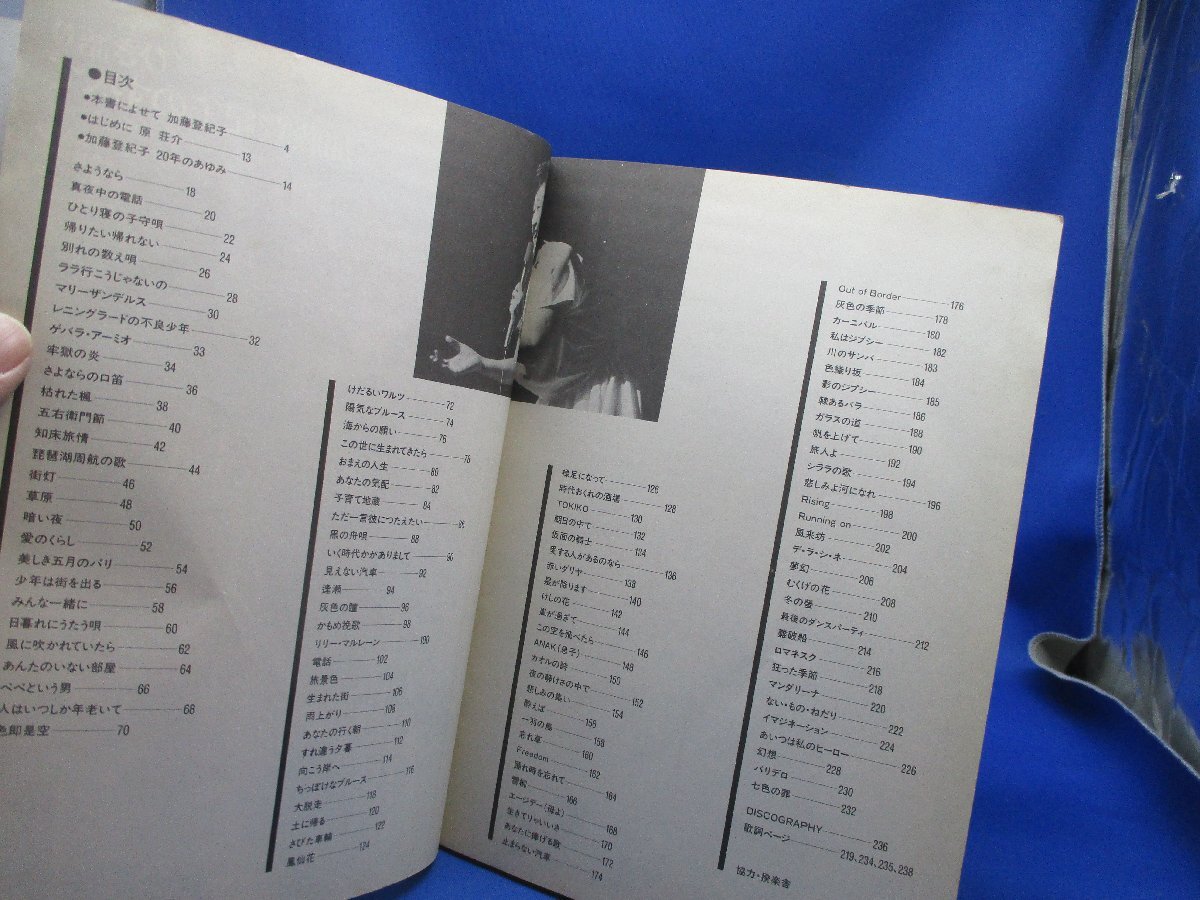 ●目次
●本書によせて 加藤登紀子 4
●はじめに 原 荘介 13
●加藤登紀子 20年のあゆみ 14
さようなら 18
真夜中の電話 20
ひとり寝の子守唄 22
帰りたい帰れない 24
別れの数え唄 26
ララ行こうじゃないの 28
マリーザンデルス 30
レニングラードの不良少年 32
ゲバラ・アーミオ 33
牢獄の炎 34
さよならの口笛 36
枯れた楓 38
五右衛門節 40
知床旅情 42
琵琶湖周航の歌 44
街灯 46
草原 48
暗い夜 50
愛のくらし 52
美しき五月のパリ 54
少年は街を出る 56
みんな一緒に 58
日暮れにうたう唄 60
風に吹かれていたら 62
あんたのいない部屋 64
ペペという男 66
人はいつしか年老いて 68
色即是空 70
けだるいワルツ 72
陽気なブルース 74
海からの願い 76
この世に生まれてきたら 78
おまえの人生 80
あなたの気配 82
子育て地蔵 84
ただ一言彼につたえたい 86
黒の舟唄 88
いく時代かがありまして 90
見えない汽車 92
逢瀬 94
灰色の瞳 96
かもめ挽歌 98
リリー・マルレーン 100
電話 102
旅景色 104
生まれた街 106
雨上がり 108
あなたの行く朝 110
すれ違う夕暮 112
向こう岸へ 114
ちっぽけなブルース 116
大脱走 118
土に帰る 120
さびた車輪 122
鳳仙花 124
裸足になって 126
時代おくれの酒場 128
TOKIKO 130
明日の中で 132
仮面の騎士 134
愛する人があるのなら 136
赤いダリヤ 138
140
けしの花 142
嵐が過ぎて 144
この空を飛べたら 146
ANAK(息子) 148
カオルの詩 150
夜の静けさの中で 152
悲しみの集い 154
酔えば 156
一羽の鳥 158
忘れ草 160
Freedom 162
踊れ時を忘れて 164
166
エージデー(母よ) 168
生きてりゃいいさ 170
あなたに捧げる歌 172
止まらない汽車 174
Out of Border 176
灰色の季節 178
カーニバル 180
私はジプシー 182
川のサンバ 183
色織り坂 184
影のジプシー 185
棘あるバラ 186
ガラスの道 188
帆を上げて 190
旅人よ 192
シララの歌 194
悲しみよ河になれ 196
Rising 198
Running on 200
風来坊 202
デ・ラ・シ・ネ 204
夢幻 206
むくげの花 208
冬の螢 210
最後のダンスパーティ 212
難破船 214
ロマネスク 216
狂った季節 218
マンダリーナ 220
ない・もの・ねだり 222
イマジネーション 224
あいつは私のヒーロー 226
幻想 228
バリデロ 230
七色の罪 232
DISCOGRAPHY 236
歌詞ページ 219,234,235,238
協力・換楽舎